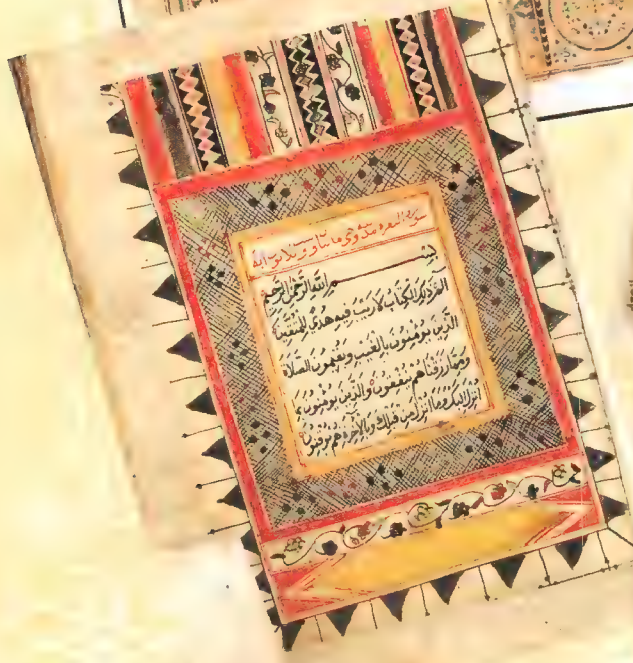 سورة البقرة مدنية وهي مائتان وثلاثون آية
بسم الله الرحمن الرحيم
الم ذلك الكتاب لا ريب فيه هدى للمتقين
الذين يؤمنون بالغيب ويقيمون الصلاة
ومما رزقناهم ينفقون والذين يؤمنون
انزل اليك وما انزل من قبلك وبالآخرة هم يوقنون